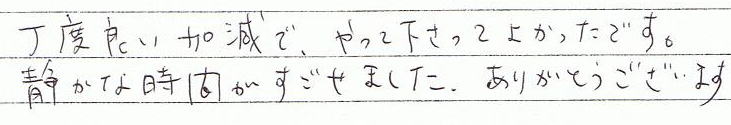 丁度良い加減で、やって下さってよかったです。
静かな時間がすごせました。ありがとうございます